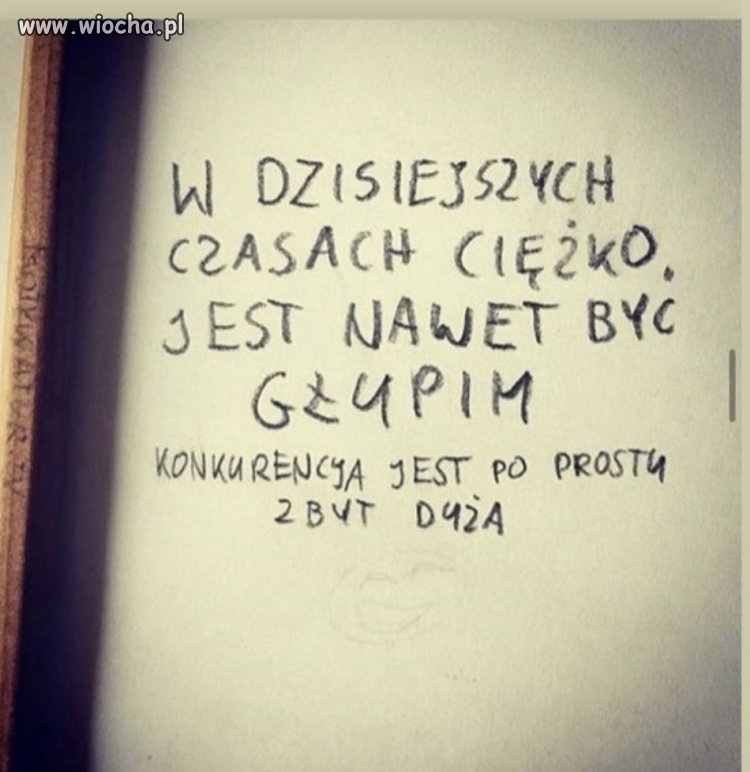 www.wiocha.pl
W DZISIEJSZYCH
CZASACH CIĘŻKO.
JEST NAWET BYC
GŁUPIM
KONKURENCJA JEST PO PROSTU
ZBYT DUŻA